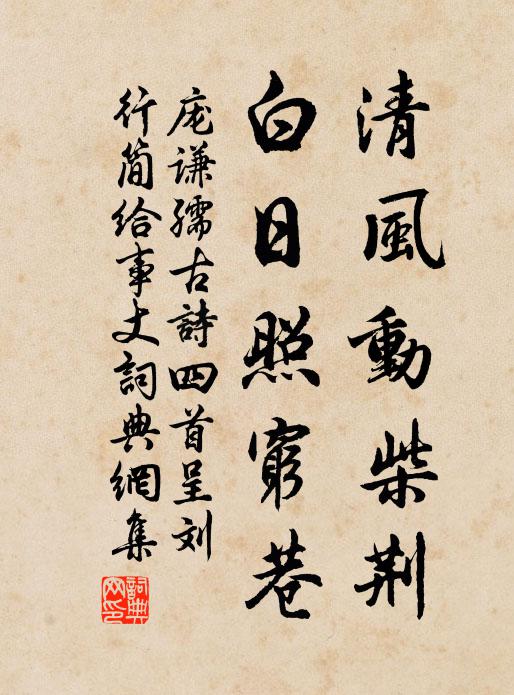 清風動柴荆
白日照窮巷
庞谦孺古詩四首呈刘
行简给事丈詞典網集
詞典网印